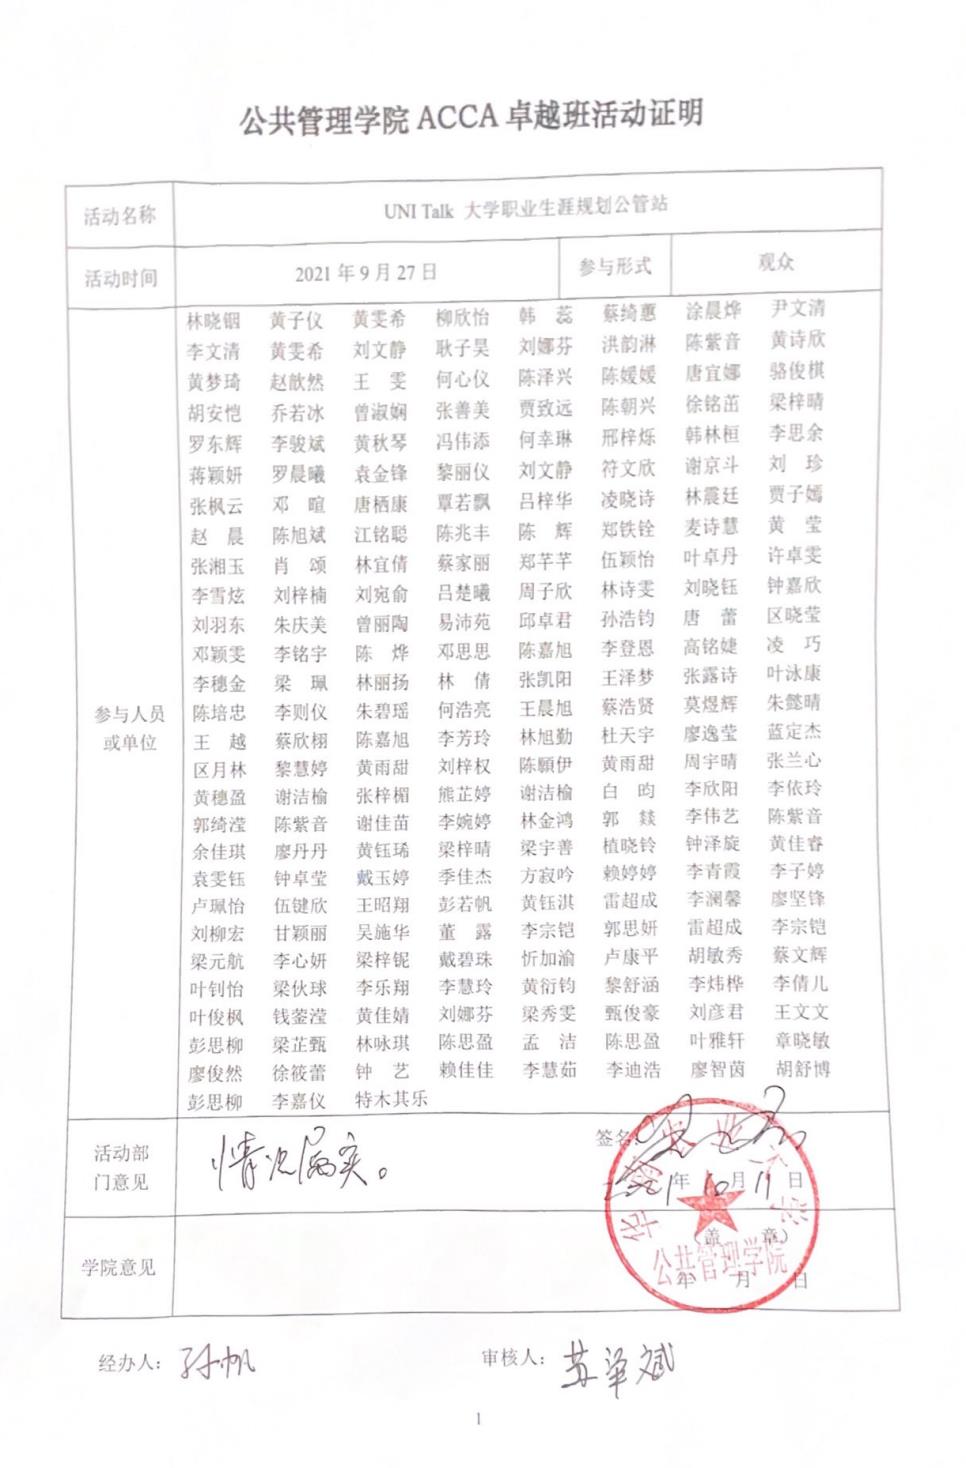 公共管理学院 ACCA 卓越班活动证明
活动名称 UNI Talk 大学职业生涯规划公管站
活动时间 2021 年 9 月 27 日 参与形式 观众
参与人员或单位
林晓铟 黄子仪 黄雯希 柳欣怡 韩 蕊 蔡绮蕙 涂晨烨 尹文清
李文清 黄雯希 刘文静 耿子昊 刘娜芬 洪韵淋 陈紫音 黄诗欣
黄梦琦 赵歆然 王 雯 何心仪 陈泽兴 陈媛媛 唐宜娜 骆俊棋
胡安恺 乔若冰 曾淑娴 张善美 贾致远 陈朝兴 徐铭茁 梁梓晴
罗东辉 李骏斌 黄秋琴 冯伟添 何幸琳 邢梓烁 韩林桓 李思余
蒋颖妍 罗晨曦 袁金锋 黎丽仪 刘文静 符文欣 谢京斗 刘 珍
张枫云 邓 暄 唐栖康 覃若飘 吕梓华 凌晓诗 林震廷 贾子嫣
赵 晨 陈旭斌 江铭聪 陈兆丰 陈 辉 郑铁铨 麦诗慧 黄 莹
张湘玉 肖 颂 林宜倩 蔡家丽 郑芊芊 伍颖怡 叶卓丹 许卓雯
李雪炫 刘梓楠 刘宛俞 吕楚曦 周子欣 林诗雯 刘晓钰 钟嘉欣
刘羽东 朱庆美 曾丽陶 易沛苑 邱卓君 孙浩钧 唐 蕾 区晓莹
邓颖雯 李铭宇 陈 烨 邓思思 陈嘉旭 李登恩 高铭婕 凌 巧
李穗金 梁 珮 林丽扬 林 倩 张凯阳 王泽梦 张露诗 叶泳康
陈培忠 李则仪 朱碧瑶 何浩亮 王晨旭 蔡浩贤 莫煜辉 朱懿晴
王 越 蔡欣栩 陈嘉旭 李芳玲 林旭勤 杜天宇 廖逸莹 蓝定杰
区月林 黎慧婷 黄雨甜 刘梓权 陈願伊 黄雨甜 周宇晴 张兰心
黄穗盈 谢洁榆 张梓楣 熊芷婷 谢洁榆 白 昀 李欣阳 李依玲
郭绮滢 陈紫音 谢佳苗 李婉婷 林金鸿 郭 燚 李伟艺 陈紫音
余佳琪 廖丹丹 黄钰琋 梁梓晴 梁宇善 植晓铃 钟泽旋 黄佳睿
袁雯钰 钟卓莹 戴玉婷 季佳杰 方寂吟 赖婷婷 李青霞 李子婷
卢珮怡 伍键欣 王昭翔 彭若帆 黄钰淇 雷超成 李澜馨 廖坚锋
刘柳宏 甘颖丽 吴施华 董 露 李宗铠 郭思妍 雷超成 李宗铠
梁元航 李心妍 梁梓铌 戴碧珠 忻加渝 卢康平 胡敏秀 蔡文辉
叶钊怡 梁伙球 李乐翔 李慧玲 黄衍钧 黎舒涵 李炜桦 李倩儿
叶俊枫 钱蓥滢 黄佳婧 刘娜芬 梁秀雯 甄俊豪 刘彦君 王文文
彭思柳 梁芷甄 林咏琪 陈思盈 孟 洁 陈思盈 叶雅轩 章晓敏
廖俊然 徐筱蕾 钟 艺 赖佳佳 李慧茹 李迪浩 廖智茵 胡舒博
彭思柳 李嘉仪 特木其乐
活动部门意见 情况属实。 签名:
年 10 月 11 日
华南农业大学
公共管理学院
学院意见 (盖 章)
年 月 日
经办人: 孙帆 审核人: 苏泽斌
1